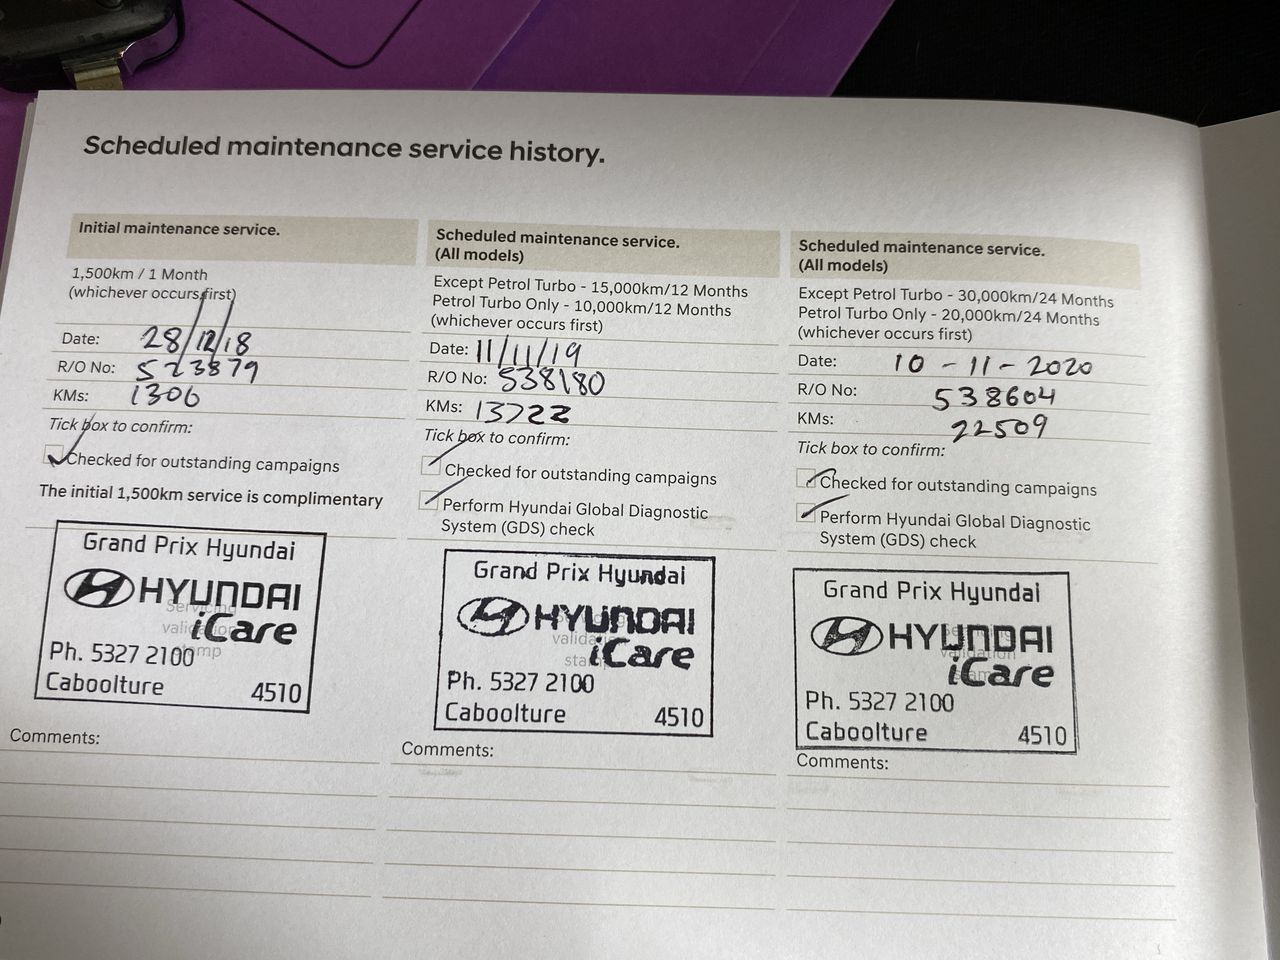 Scheduled maintenance service history.
Initial maintenance service.
1,500km / 1 Month
(whichever occurs first)
Date: 28/12/18
R/O No: 523879
KMs: 1306
Tick box to confirm:
Checked for outstanding campaigns
The initial 1,500km service is complimentary
Grand Prix Hyundai
HYUNDAI
Servicing
iCare
validation
stamp
Ph. 5327 2100
Caboolture 4510
Comments:
Scheduled maintenance service.
(All models)
Except Petrol Turbo - 15,000km/12 Months
Petrol Turbo Only - 10,000km/12 Months
(whichever occurs first)
Date: 11/11/19
R/O No: 538180
KMs: 13722
Tick box to confirm:
Checked for outstanding campaigns
Perform Hyundai Global Diagnostic
System (GDS) check
Grand Prix Hyundai
HYUNDAI
iCare
Ph. 5327 2100
Caboolture 4510
Comments:
Scheduled maintenance service.
(All models)
Except Petrol Turbo - 30,000km/24 Months
Petrol Turbo Only - 20,000km/24 Months
(whichever occurs first)
Date: 10-11-2020
R/O No: 538604
KMs: 22509
Tick box to confirm:
Checked for outstanding campaigns
Perform Hyundai Global Diagnostic
System (GDS) check
Grand Prix Hyundai
HYUNDAI
validation
iCare
Ph. 5327 2100
Caboolture 4510
Comments: